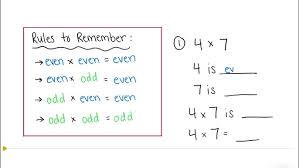 Rules to Remember:
→ even x even = even
→ even x odd = even
→ odd x even = even
→ odd x odd = odd
① 4 x 7
4 is ev____
7 is ____
4 x 7 is ____
4 x 7 = ____